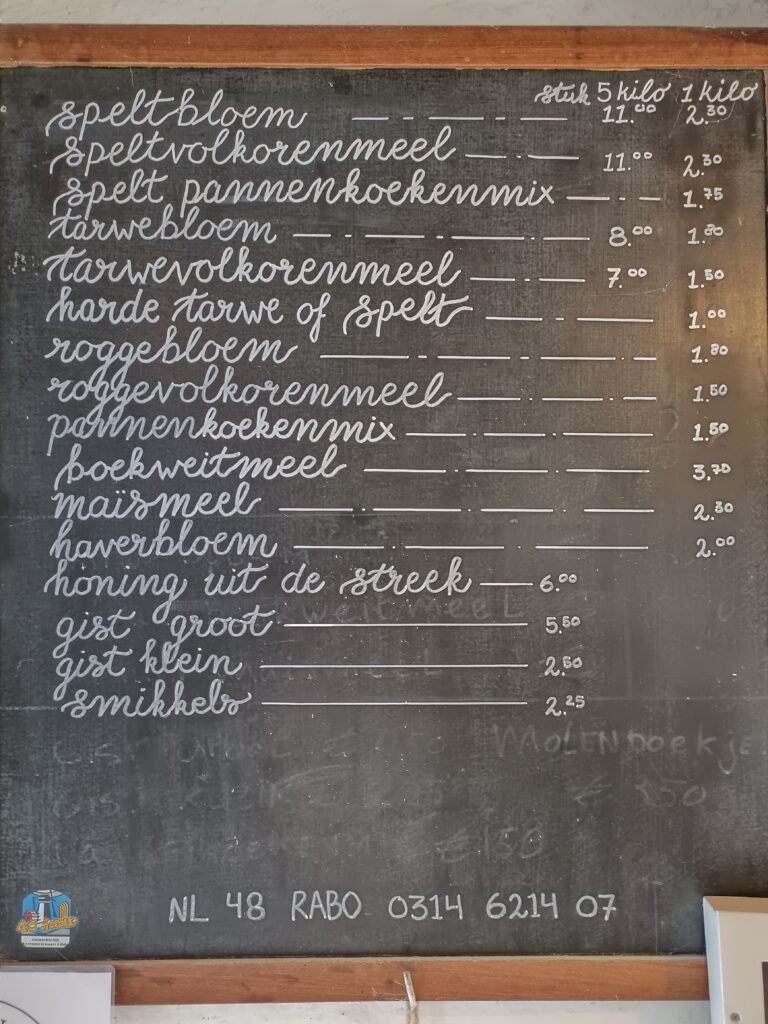 stuk 5 kilo 1 kilo
speltbloem 11.00 2.30
speltvolkorenmeel 11.00 2.30
spelt pannenkoekenmix 1.75
tarwebloem 8.00 1.80
tarwevolkorenmeel 7.00 1.50
harde tarwe of spelt 1.00
roggebloem 1.80
roggevolkorenmeel 1.50
pannenkoekenmix 1.50
boekweitmeel 3.70
maïsmeel 2.30
haverbloem 2.00
honing uit de streek 6.00
gist groot 5.50
gist klein 2.50
smikkels 2.25
MOLENboekje
NL 48 RABO 0314 6214 07